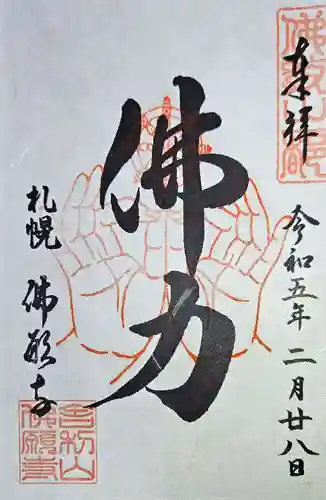 奉拝
佛力
令和五年二月廿八日
札幌 佛願寺